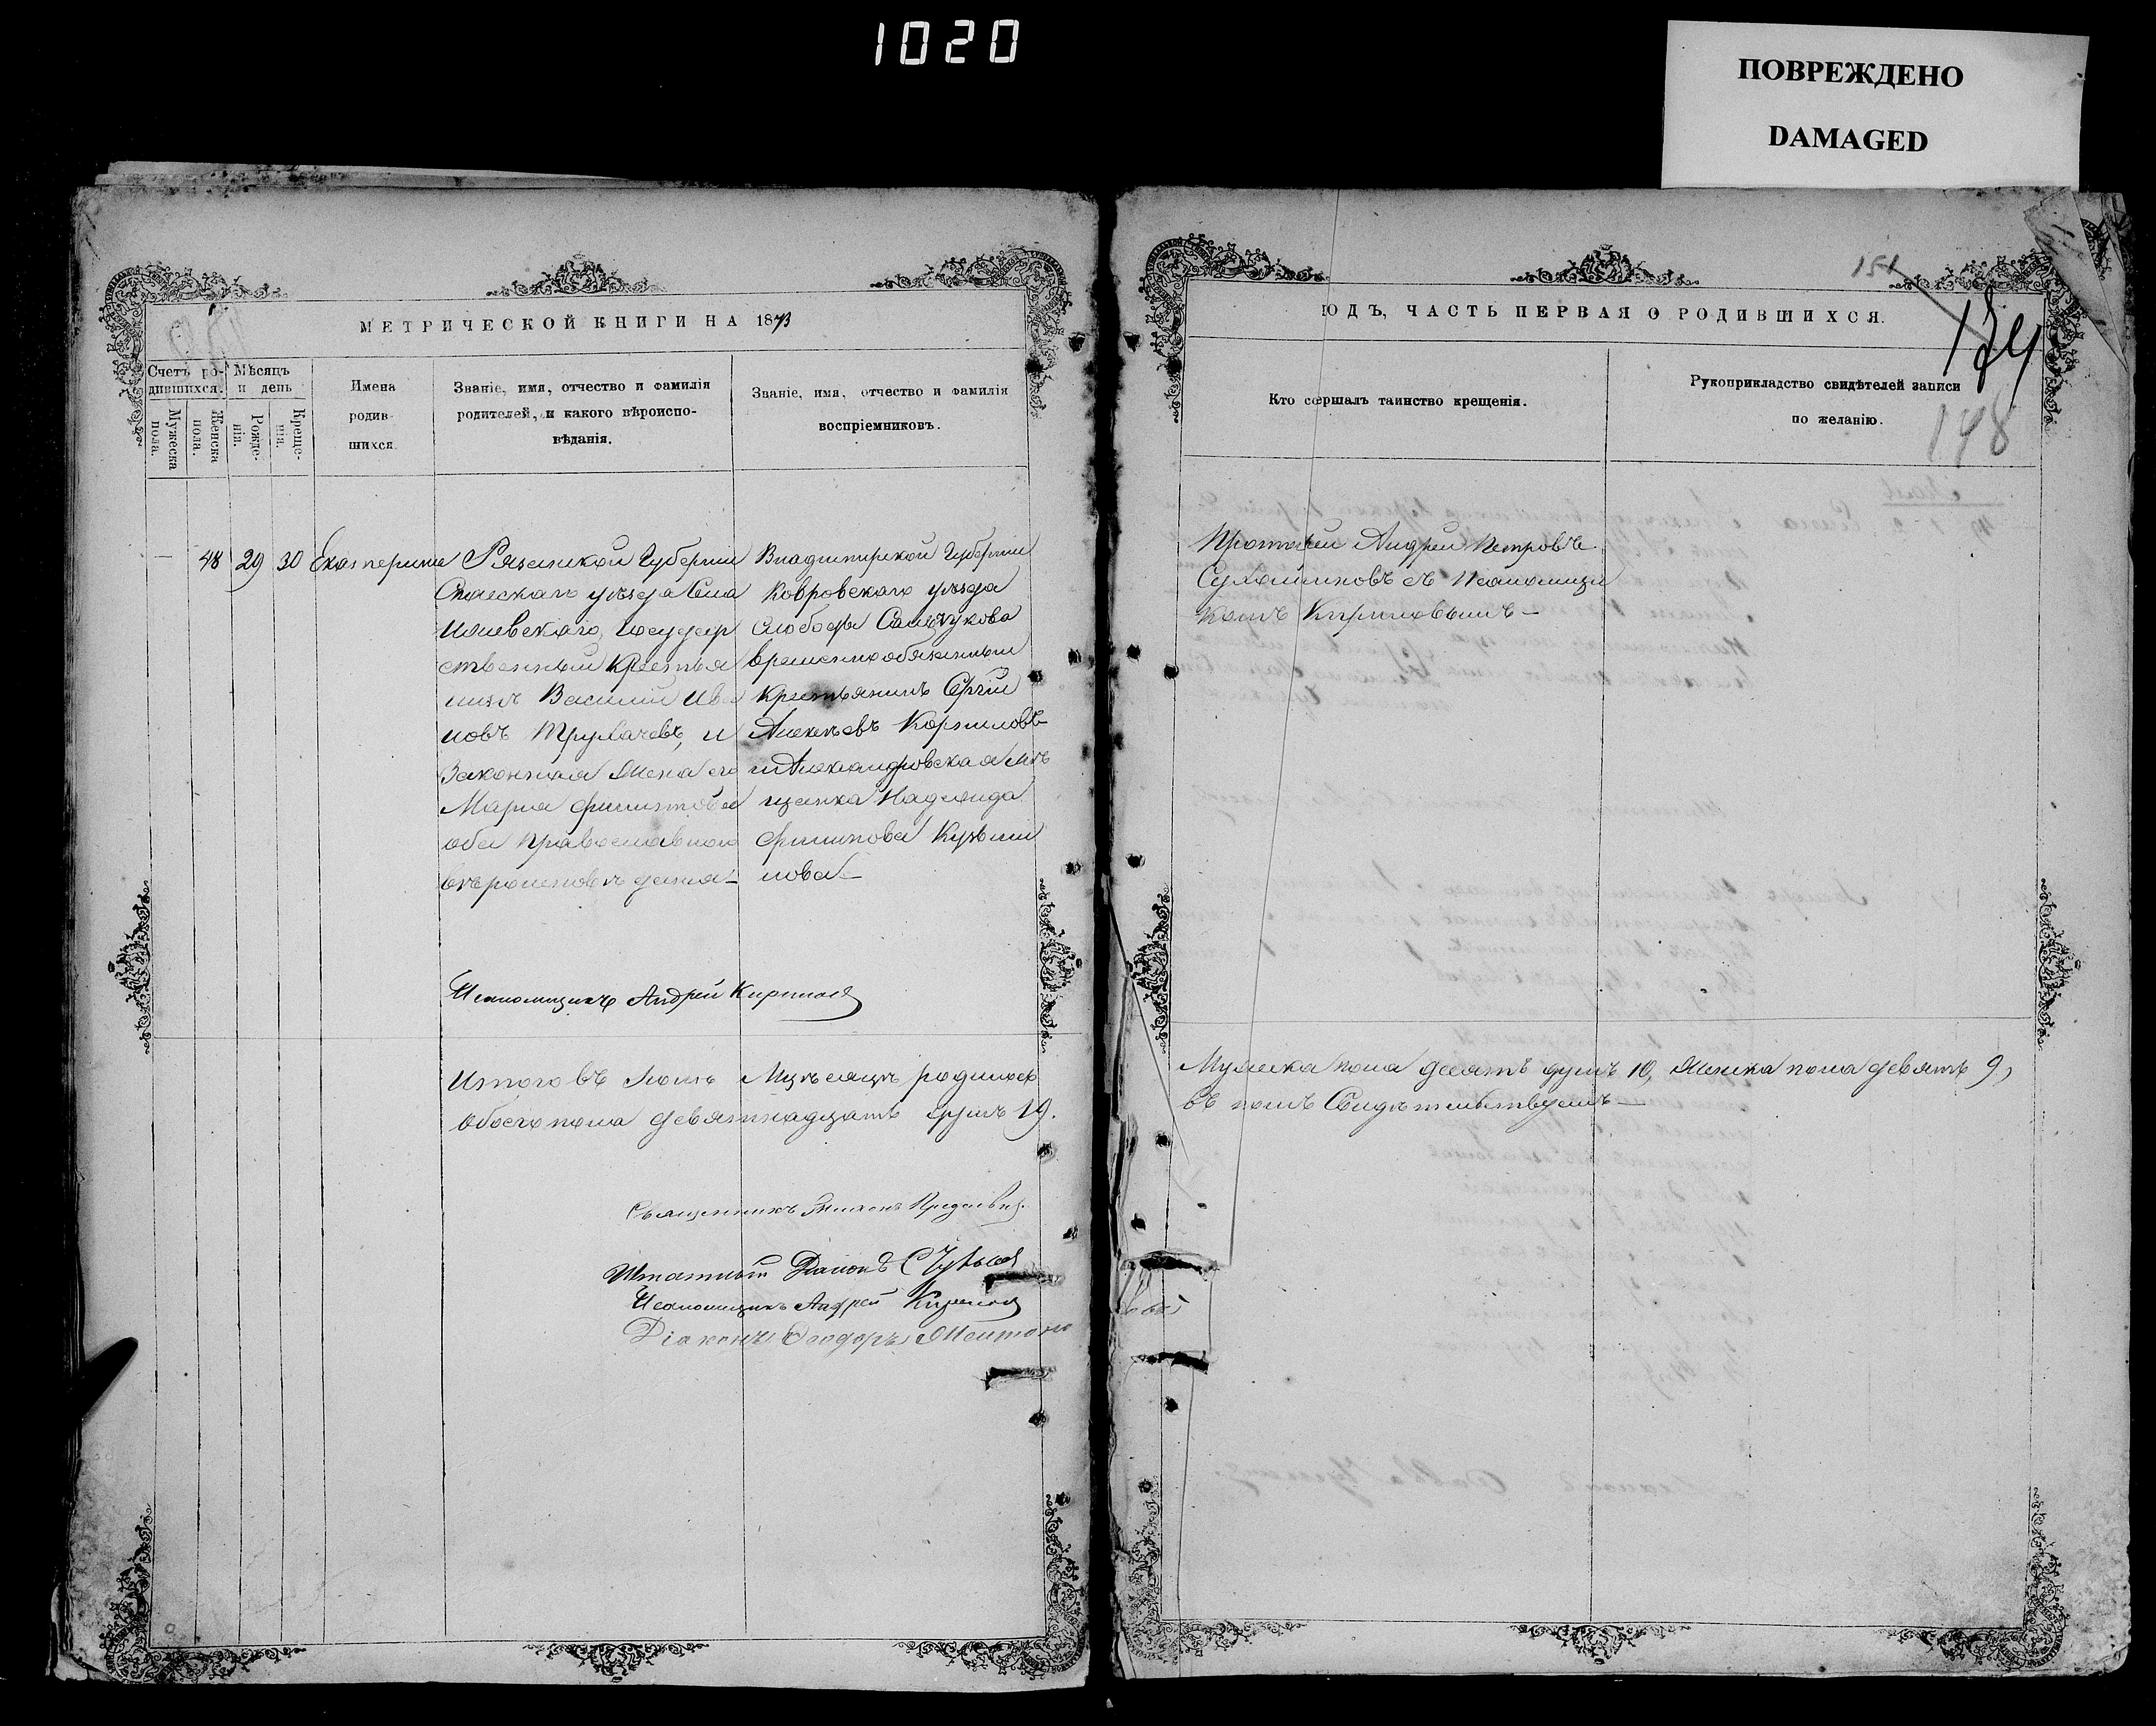 1020
ПОВРЕЖДЕНО
DAMAGED
МЕТРИЧЕСКОЙ КНИГИ НА 1873
Счетъ ро-
дившихся.
Мѣсяцъ
и день
Мужеска
пола.
Женска
пола.
Рожде-
нія.
Креще-
нія.
Имена
родив-
шихся.
Званіе, имя, отчество и фамилія
родителей, и какого вѣроиспо-
вѣданія.
Званіе, имя, отчество и фамилія
воспріемниковъ.
48 29 30 Екатерина
Рязанской Губерніи
Спаскаго уѣзда Села
Ижевскаго, Государ
ственный Крестья
нинъ Василій Ива
новъ Трухачевъ, и
Законная Жена его
Марія Филиппова
оба Православнаго
вѣроисповѣданія
Владимирской Губерніи
Ковровскаго уѣзда
слободы
временнообязанный
Крестьянинъ Сергѣй
Алексѣевъ Корниловъ
и Александровская мѣ
щанка Надежда
Филипова Кузьми
нова
Псаломщикъ Андрей Кириловъ
Итого въ Маѣ Мѣсяцѣ родилось
обоего пола девятнадцать душъ 19.
Священникъ
Штатный Діаконъ
Псаломщикъ Андрей Кириловъ
Діаконъ Ѳеодоръ
ГОДЪ, ЧАСТЬ ПЕРВАЯ О РОДИВШИХСЯ.
151
148
Кто совершалъ таинство крещенія.
Рукоприкладство свидѣтелей записи
по желанію.
Протоіерей Андрей Петровъ
съ Псаломщи
комъ Кириловымъ
Мужска пола десять душъ 10, Женска пола девять 9,
въ томъ Свидѣтельствуемъ